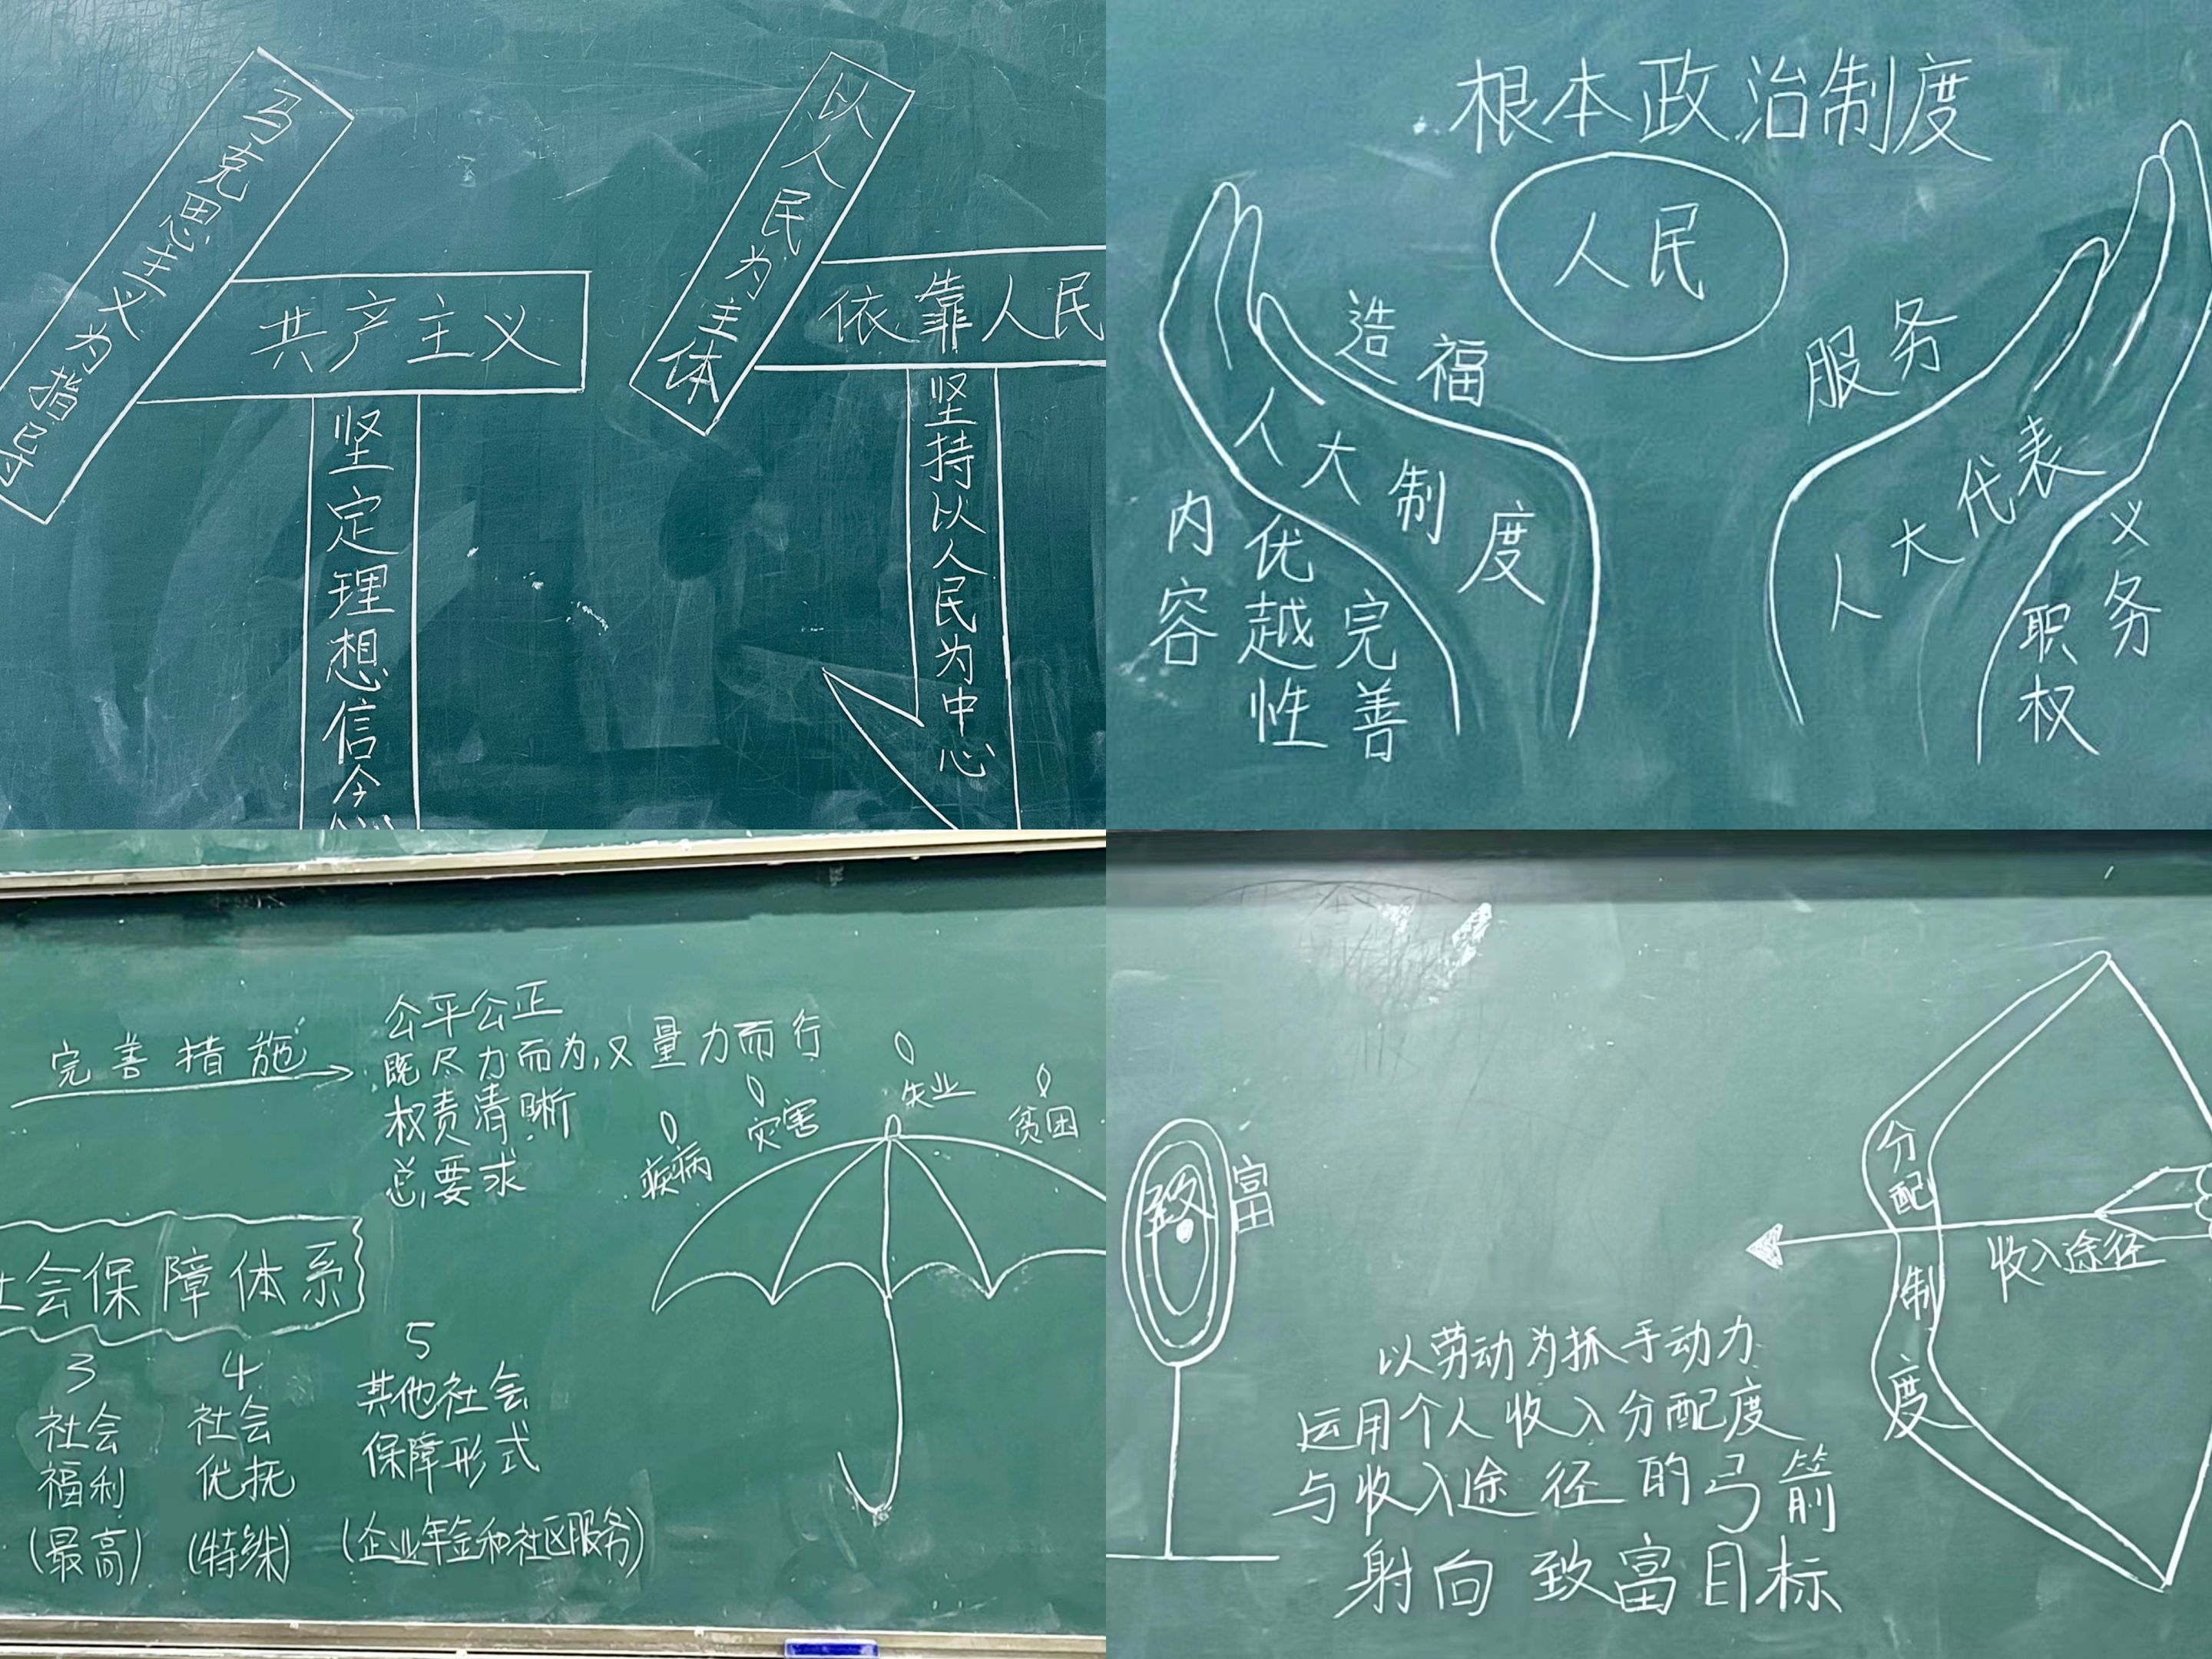 马克思主义为指导
共产主义
坚定理想信念
以人民为主体
依靠人民
坚持以人民为中心
根本政治制度
人民
造福
服务
人大制度
人大代表
内容
优越性
完善
义务
职权
完善措施
公平公正
既尽力而为,又量力而行
权责清晰
总要求
疾病
灾害
失业
贫困
会保障体系
3
社会
福利
(最高)
4
社会
优抚
(特殊)
5
其他社会
保障形式
(企业年金和社区服务)
致富
分配制度
收入途径
以劳动为抓手动力
运用个人收入分配度
与收入途径的弓箭
射向致富目标